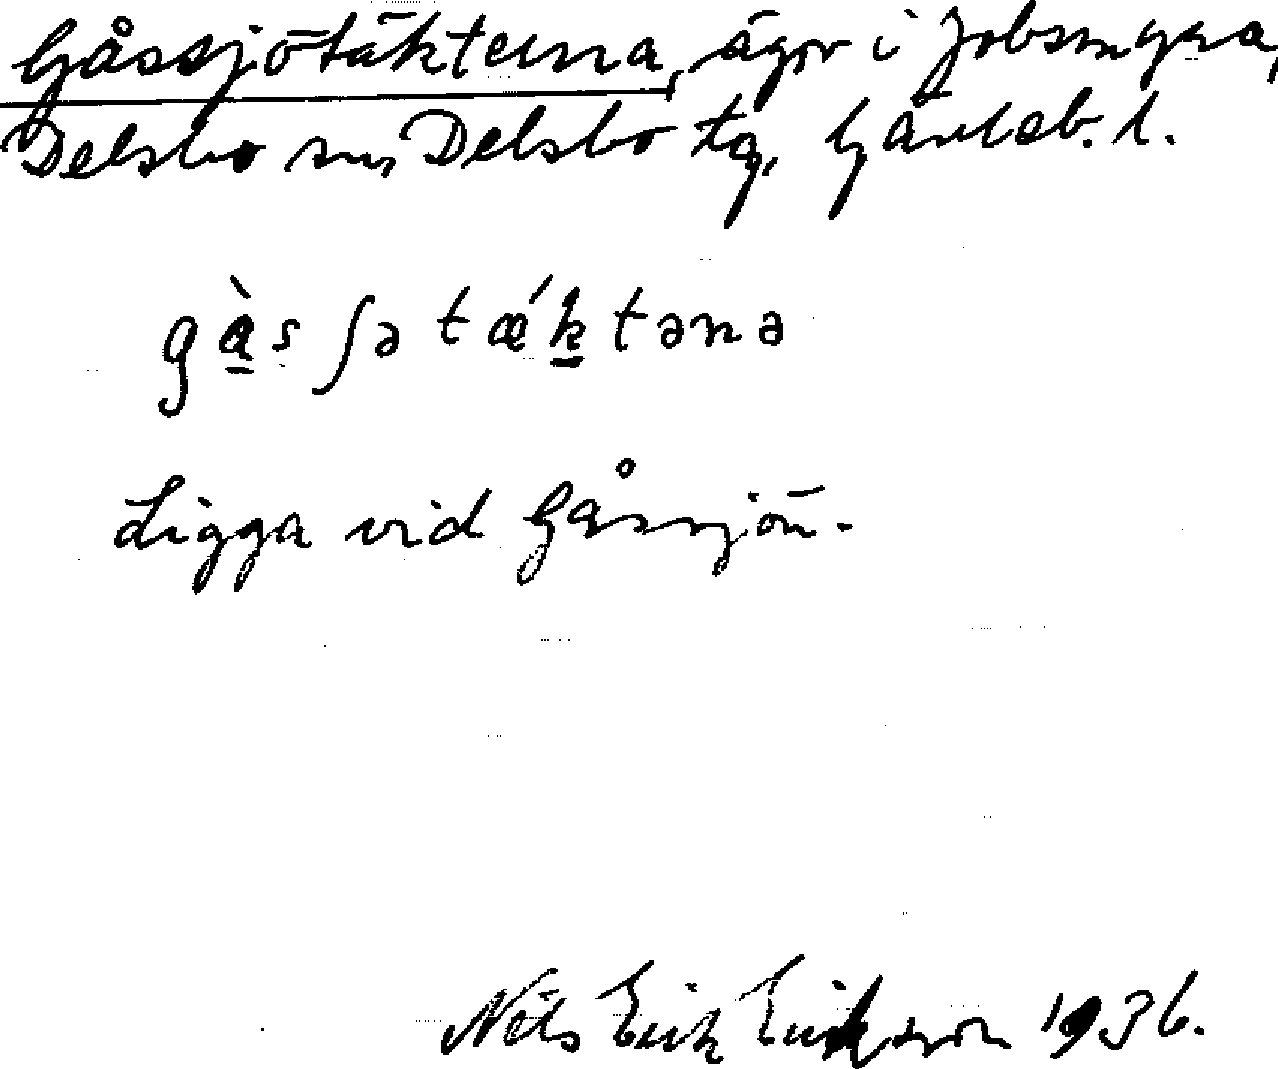 Gåssjötäkterna, ägor i Jobsmyra,
Delsbo sn, Delsbo tg, Gävleb. l.
gàsʃətækˊtənə
Ligga vid Gåssjön.
Nils Erik Eriksson 1936.